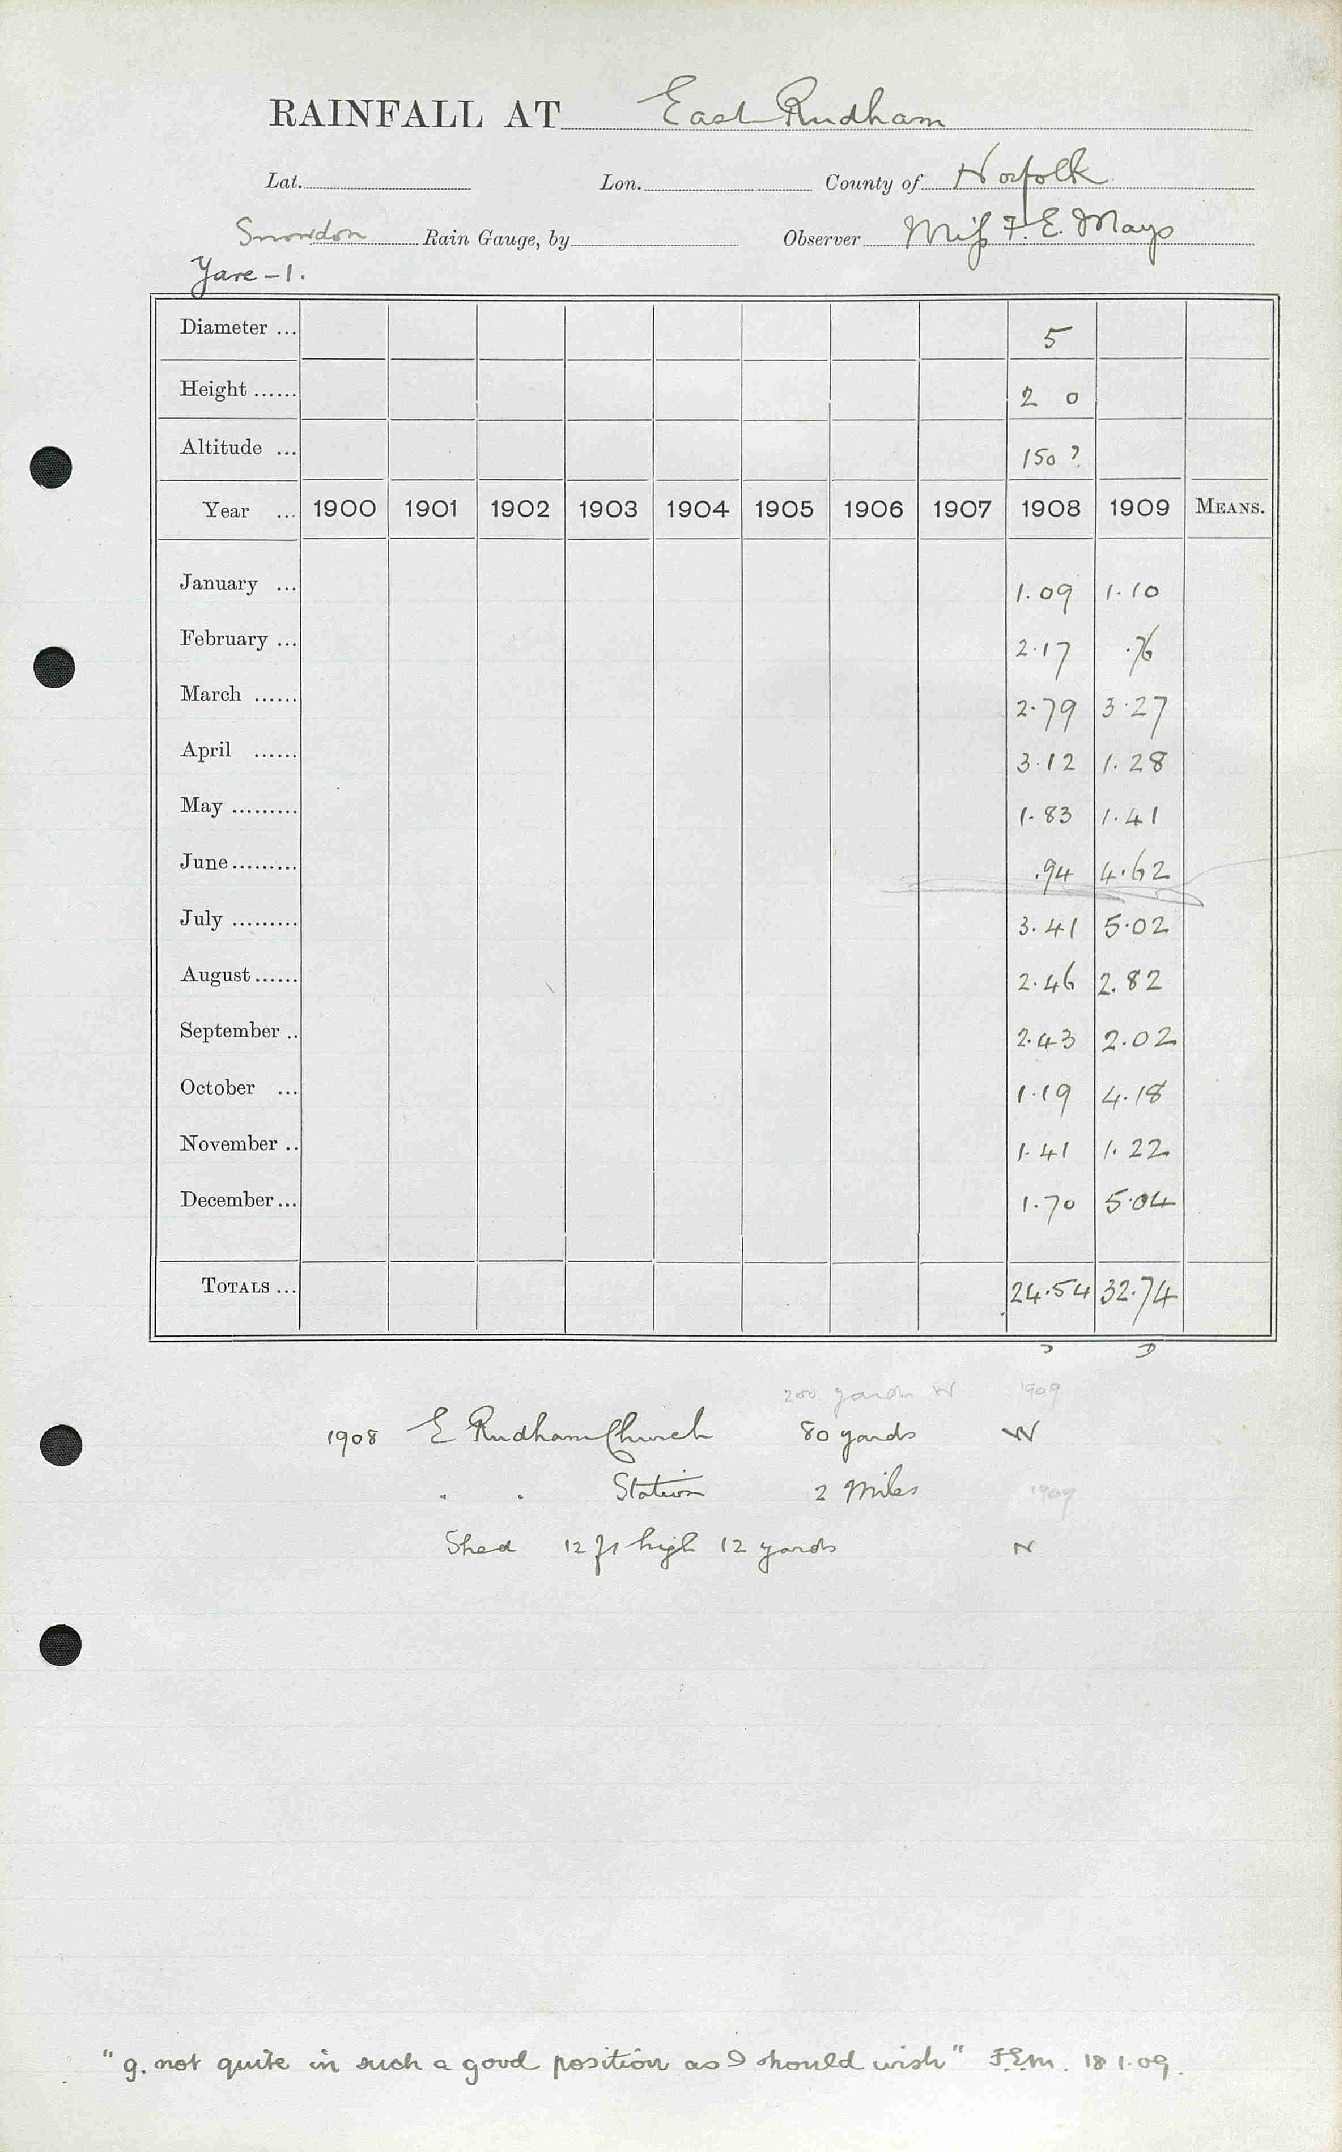 RAINFALL AT East Rudham
Lat. Lon. County of Norfolk
Snowdon Rain Gauge, by Observer Miss F. E. Mays
Yare - 1.
Diameter ... 5
Height ...... 2 0
Altitude ... 150 ?
Year ... 1900 1901 1902 1903 1904 1905 1906 1907 1908 1909 MEANS.
January ... 1.09 1.10
February ... 2.17 .76
March ...... 2.79 3.27
April ...... 3.12 1.28
May ......... 1.83 1.41
June ......... .94 4.62
July ......... 3.41 5.02
August ...... 2.46 2.82
September .. 2.43 2.02
October ... 1.19 4.18
November .. 1.41 1.22
December ... 1.70 5.04
TOTALS ... 24.54 32.74
200 yards W 1909
1908 E Rudham Church 80 yards W
" " Station 2 Miles 1909
Shed 12 ft high 12 yards N
"g. not quite in such a good position as I should wish" F.E.M. 18.1.09.